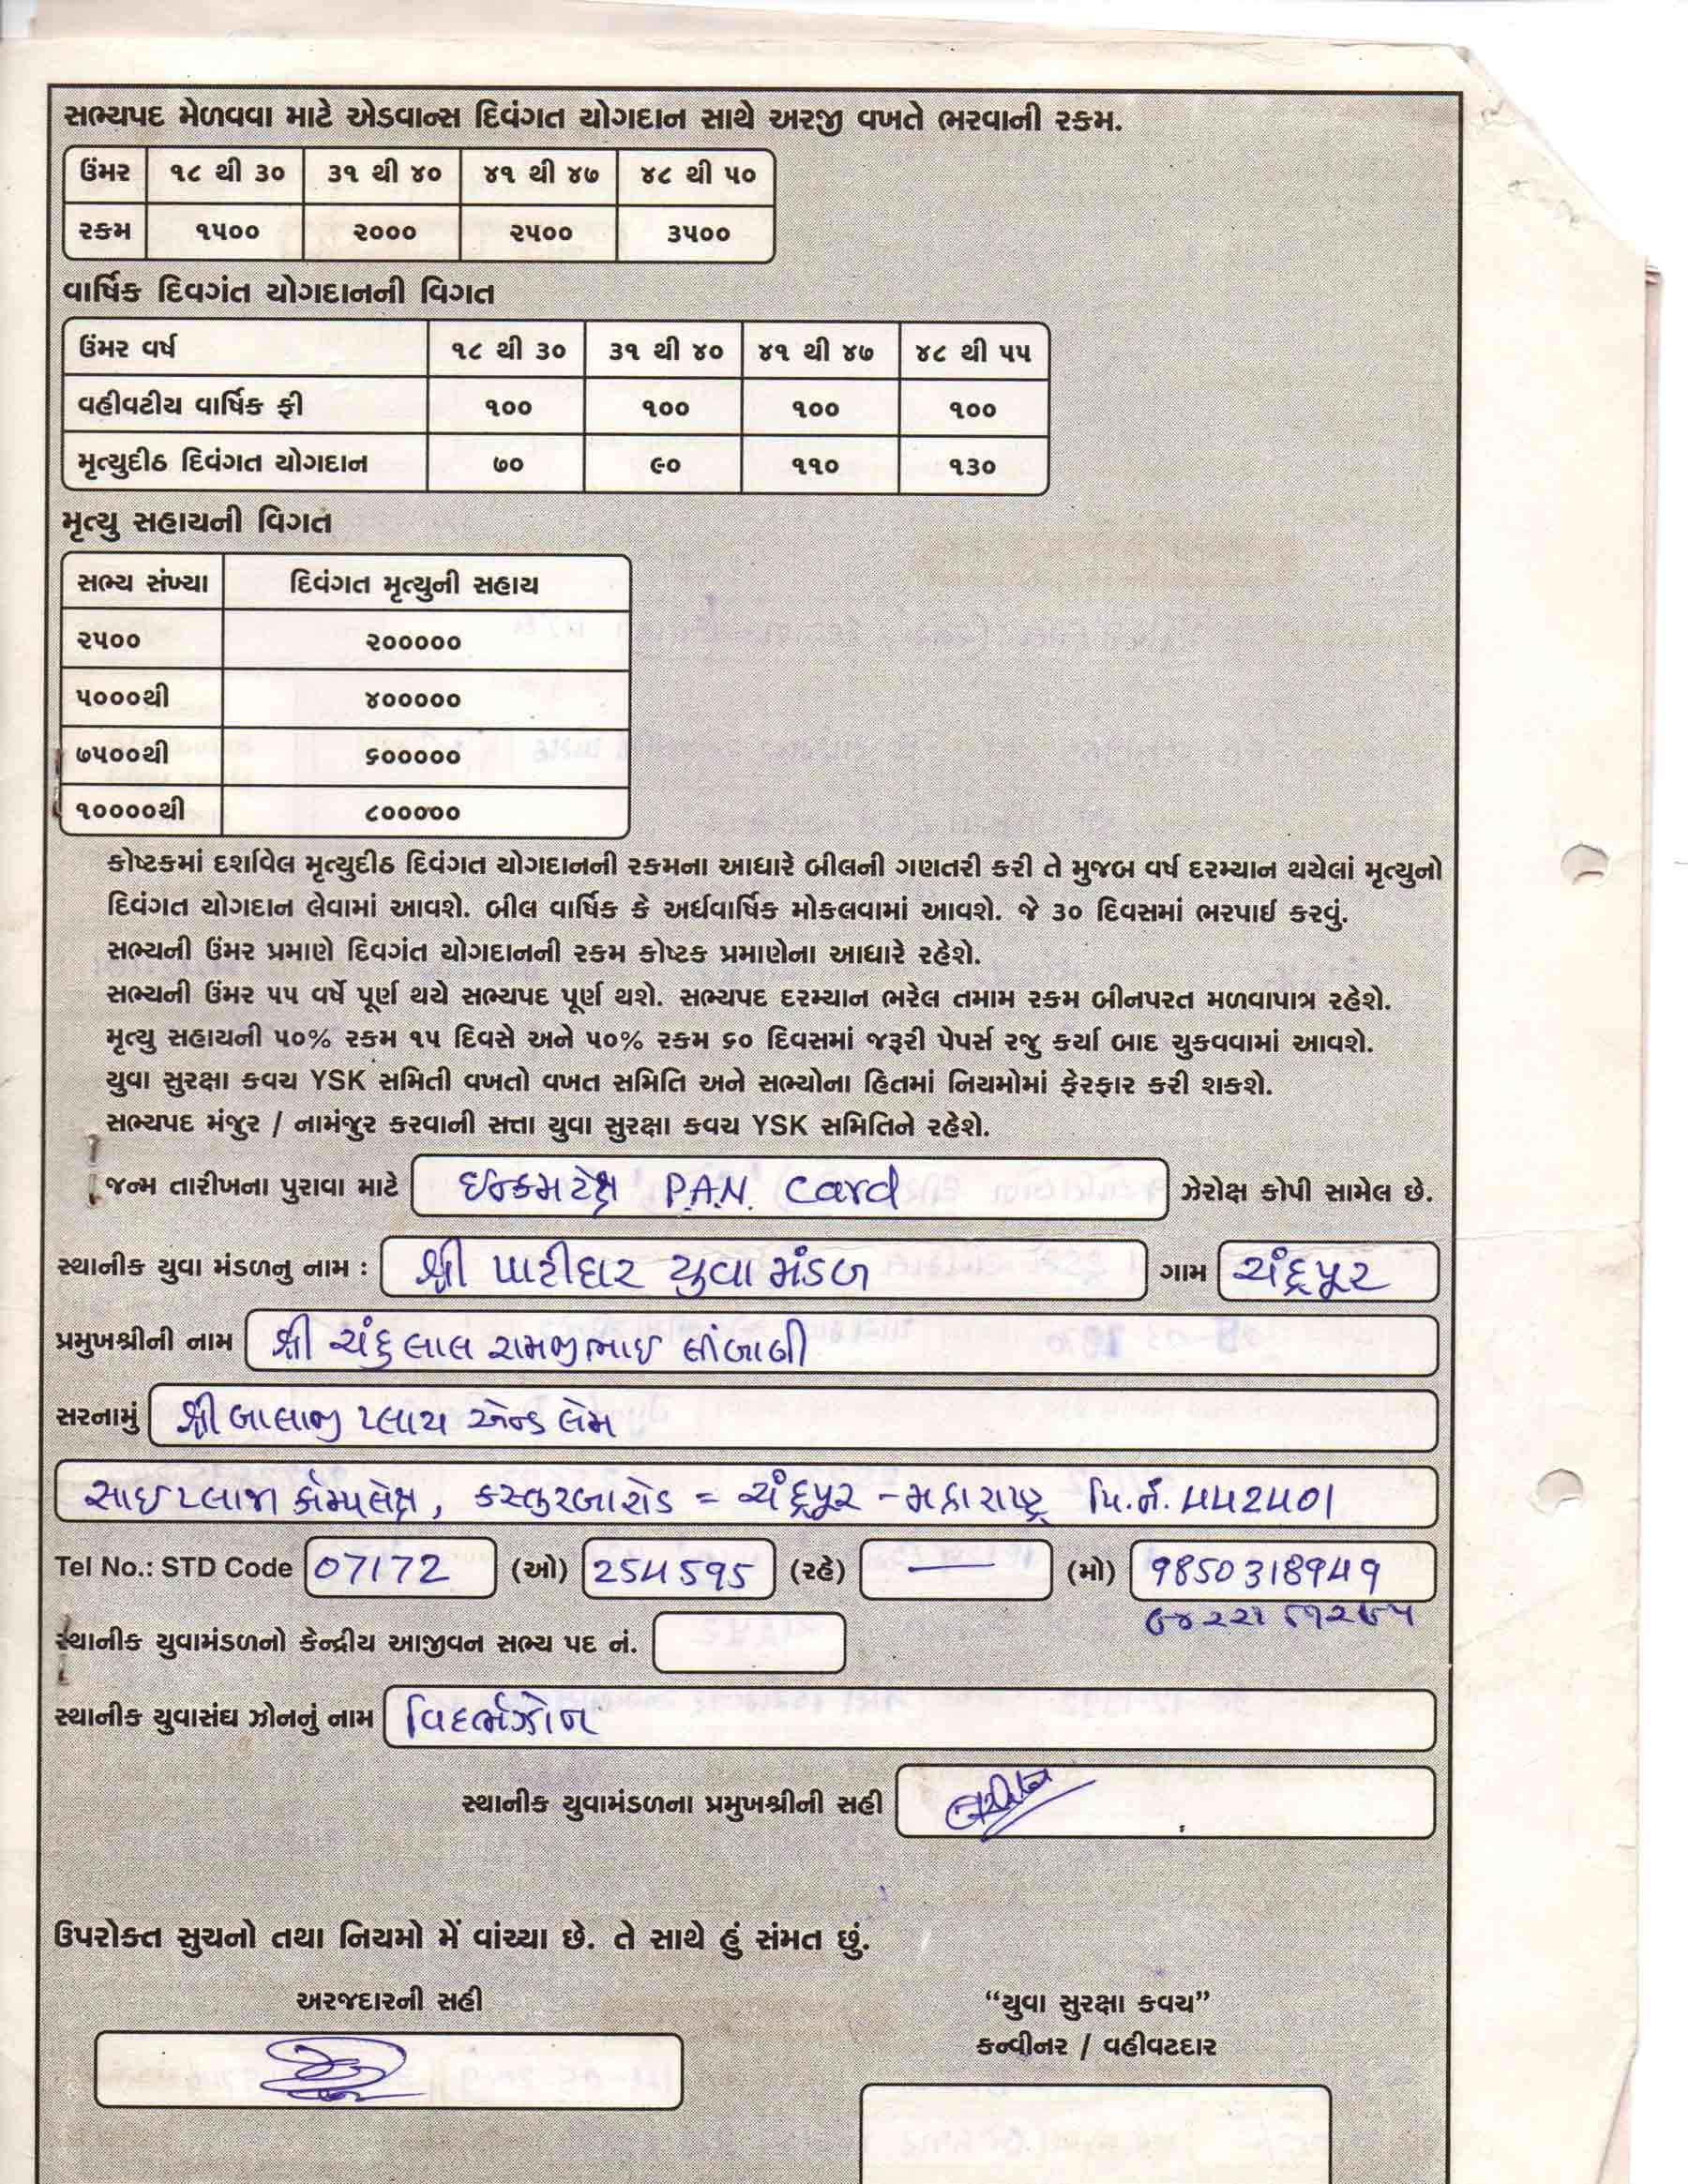 સભ્યપદ મેળવવા માટે એડવાન્સ દિવંગત યોગદાન સાથે અરજી વખતે ભરવાની રકમ.
ઉંમર ૧૮ થી ૩૦ ૩૧ થી ૪૦ ૪૧ થી ૪૭ ૪૮ થી ૫૦
રકમ ૧૫૦૦ ૨૦૦૦ ૨૫૦૦ ૩૫૦૦
વાર્ષિક દિવગંત યોગદાનની વિગત
ઉંમર વર્ષ ૧૮ થી ૩૦ ૩૧ થી ૪૦ ૪૧ થી ૪૭ ૪૮ થી ૫૫
વહીવટીય વાર્ષિક ફી ૧૦૦ ૧૦૦ ૧૦૦ ૧૦૦
મૃત્યુદીઠ દિવંગત યોગદાન ૭૦ ૯૦ ૧૧૦ ૧૩૦
મૃત્યુ સહાયની વિગત
સભ્ય સંખ્યા દિવંગત મૃત્યુની સહાય
૨૫૦૦ ૨૦૦૦૦૦
૫૦૦૦થી ૪૦૦૦૦૦
૭૫૦૦થી ૬૦૦૦૦૦
૧૦૦૦૦થી ૮૦૦૦૦૦
કોષ્ટકમાં દર્શાવેલ મૃત્યુદીઠ દિવંગત યોગદાનની રકમના આધારે બીલની ગણતરી કરી તે મુજબ વર્ષ દરમ્યાન થયેલાં મૃત્યુનો
દિવંગત યોગદાન લેવામાં આવશે. બીલ વાર્ષિક કે અર્ધવાર્ષિક મોકલવામાં આવશે. જે ૩૦ દિવસમાં ભરપાઈ કરવું.
સભ્યની ઉંમર પ્રમાણે દિવગંત યોગદાનની રકમ કોષ્ટક પ્રમાણેના આધારે રહેશે.
સભ્યની ઉંમર ૫૫ વર્ષે પૂર્ણ થયે સભ્યપદ પૂર્ણ થશે. સભ્યપદ દરમ્યાન ભરેલ તમામ રકમ બીનપરત મળવાપાત્ર રહેશે.
મૃત્યુ સહાયની ૫૦% રકમ ૧૫ દિવસે અને ૫૦% રકમ ૬૦ દિવસમાં જરૂરી પેપર્સ રજુ કર્યા બાદ ચુકવવામાં આવશે.
યુવા સુરક્ષા કવચ YSK સમિતી વખતો વખત સમિતિ અને સભ્યોના હિતમાં નિયમોમાં ફેરફાર કરી શકશે.
સભ્યપદ મંજુર / નામંજુર કરવાની સત્તા યુવા સુરક્ષા કવચ YSK સમિતિને રહેશે.
જન્મ તારીખના પુરાવા માટે ઈન્કમટેક્ષ P.A.N. Card ઝેરોક્ષ કોપી સામેલ છે.
સ્થાનીક યુવા મંડળનુ નામ : શ્રી પાટીદાર યુવા મંડળ ગામ ચંદ્રપૂર
પ્રમુખશ્રીની નામ શ્રી ચંદુલાલ રામજીભાઈ લીંબાણી
સરનામું શ્રી બાલાજી પ્લાય એન્ડ લેમ
સાઈ પ્લાજા કોમ્પલેક્ષ, કસ્તુરબા રોડ = ચંદ્રપૂર - મહારાષ્ટ્ર પિ.નં. 442401
Tel No.: STD Code 07172 (ઓ) 254595 (રહે) — (મો) 9850318949
સ્થાનીક યુવામંડળનો કેન્દ્રીય આજીવન સભ્ય પદ નં.
સ્થાનીક યુવાસંઘ ઝોનનું નામ વિદર્ભઝોન
સ્થાનીક યુવામંડળના પ્રમુખશ્રીની સહી
ઉપરોક્ત સુચનો તથા નિયમો મેં વાંચ્યા છે. તે સાથે હું સંમત છું.
અરજદારની સહી
“યુવા સુરક્ષા કવચ”
કન્વીનર / વહીવટદાર